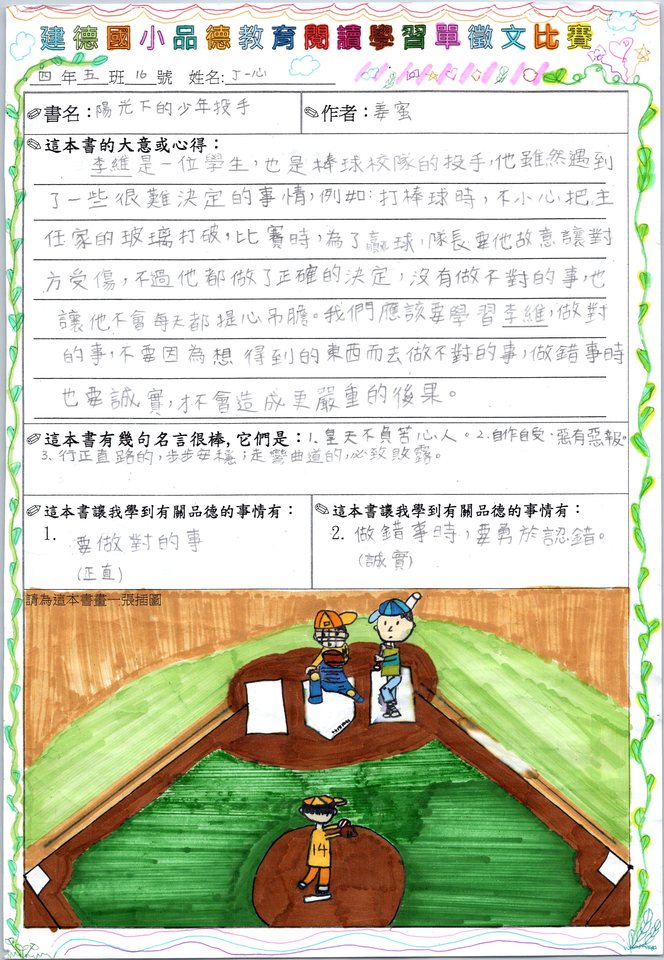 建德國小品德教育閱讀學習單徵文比賽
四年五班16號 姓名:丁一心
書名：陽光下的少年投手
作者：姜蜜
這本書的大意或心得：
李維是一位學生，也是棒球校隊的投手，他雖然遇到
了一些很難決定的事情，例如：打棒球時，不小心把主
任家的玻璃打破，比賽時，為了贏球，隊長要他故意讓對
方受傷，不過他都做了正確的決定，沒有做不對的事，也
讓他不會每天都提心吊膽。我們應該要學習李維，做對
的事，不要因為想得到的東西而去做不對的事，做錯事時
也要誠實，才不會造成更嚴重的後果。
這本書有幾句名言很棒，它們是：1.皇天不負苦心人。2.自作自受、惡有惡報。
3.行正直路的，步步安穩；走彎曲道的，必致敗露。
這本書讓我學到有關品德的事情有：
1. 要做對的事
(正直)
這本書讓我學到有關品德的事情有：
2. 做錯事時，要勇於認錯。
(誠實)
請為這本書畫一張插圖
14